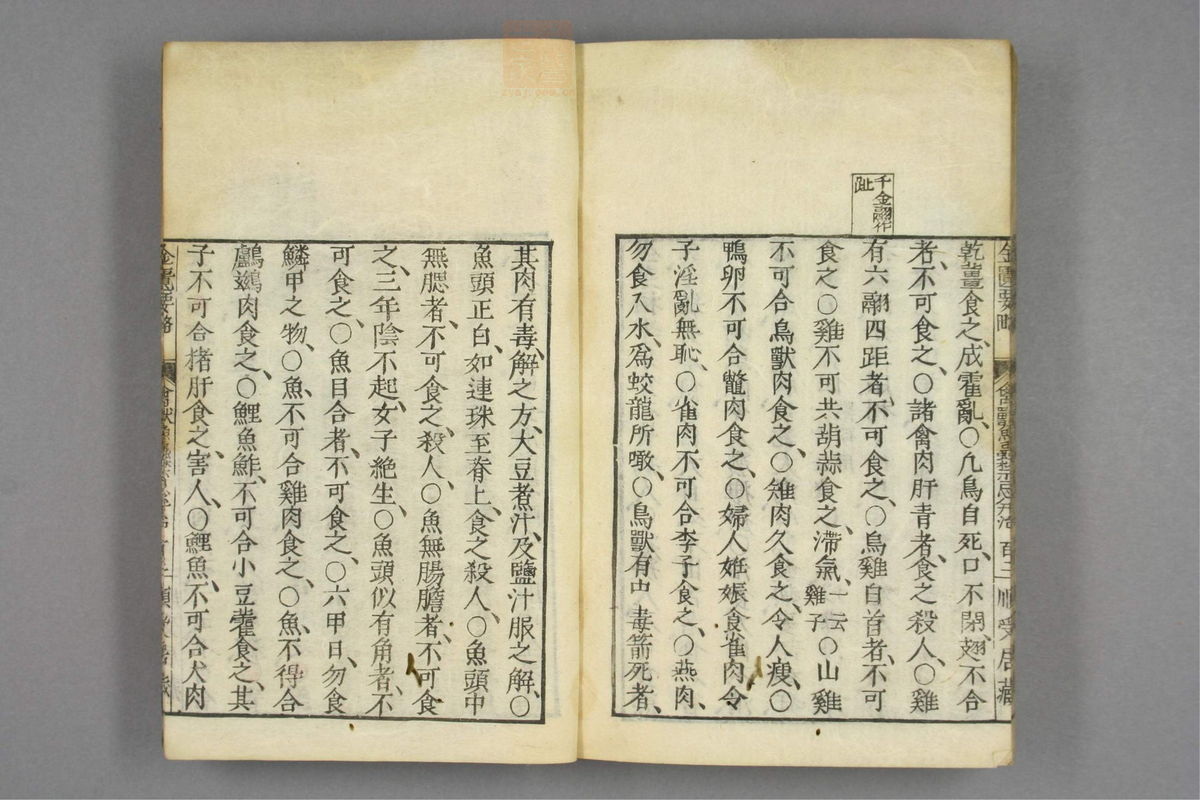 千金翮作
趾
乾薑食之、成霍亂、〇凡鳥自死、口不閉、翅不合
者、不可食之、〇諸禽肉肝青者、食之殺人、〇雞
有六翮四距者、不可食之、〇烏雞白首者、不可
食之〇雞不可共葫蒜食之、滯氣、一云雞子〇山雞
不可合鳥獸肉食之、〇雉肉久食之、令人瘦、〇
鴨卵不可合鼈肉食之、〇婦人妊娠食雀肉令
子淫亂無恥、〇雀肉不可合李子食之、〇燕肉、
勿食入水、爲蛟龍所噉、〇鳥獸有中毒箭死者、
其肉有毒、解之方、大豆煮汁、及鹽汁服之解、〇
魚頭正白、如連珠至脊上、食之殺人、〇魚頭中
無腮者、不可食之、殺人、〇魚無腸膽者、不可食
之、三年陰不起、女子絶生、〇魚頭似有角者、不
可食之、〇魚目合者、不可食之、〇六甲日、勿食
鱗甲之物、〇魚不可合雞肉食之、〇魚不得合
鸕鷀肉食之、〇鯉魚鮓、不可合小豆藿食之、其
子不可合猪肝食之、害人、〇鯉魚、不可合犬肉
金匱要略